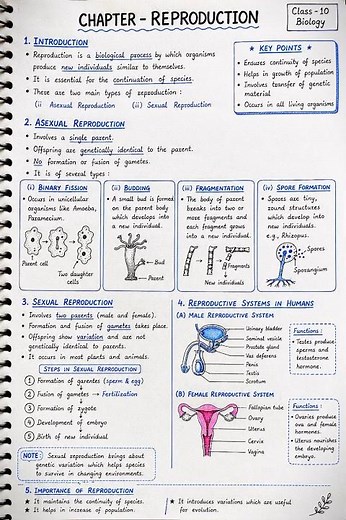 CHAPTER - REPRODUCTION
Class - 10
Biology
1. INTRODUCTION
• Reproduction is a biological process by which organisms
produce new individuals similar to themselves.
• It is essential for the continuation of species.
• There are two main types of reproduction :
(i Asexual Reproduction (ii) Sexual Reproduction
★ KEY POINTS ★
• Ensures continuity of species
• Helps in growth of population
• Involves transfer of genetic
material
• Occurs in all living organisms
2. ASEXUAL REPRODUCTION
• Involves a single parent.
• Offspring are genetically identical to the parent.
• No formation or fusion of gametes.
• It is of several types :
(i) BINARY FISSION
• Occurs in unicellular
organisms like Amoeba,
Paramecium.
Parent cell
Two daughter
cells
(ii) BUDDING
A small bud is formed
on the parent body
which develops into
a new individual.
Bud
Parent
(iii) FRAGMENTATION
• The body of parent
breaks into two or
more fragments and
each fragment grows
into a new individual.
Fragments
New individuals
(iv) SPORE FORMATION
• Spores are tiny,
round structures
which develop into
new individuals.
e.g., Rhizopus.
Spores
Sporangium
3. SEXUAL REPRODUCTION
• Involves two parents (male and female).
• Formation and fusion of gametes takes place.
• Offspring show variation and are not
genetically identical to parents.
• It occurs in most plants and animals.
STEPS IN SEXUAL REPRODUCTION
1 Formation of gametes (sperm & egg)
2 Fusion of gametes → Fertilization
3 Formation of zygote
4 Development of embryo
5 Birth of new individual
NOTE : Sexual reproduction brings about
genetic variation which helps species
to survive in changing environment.
4. REPRODUCTIVE SYSTEMS IN HUMANS
(A) MALE REPRODUCTIVE SYSTEM
Urinary bladder
Seminal vesicle
Prostate gland
Vas deferens
Penis
Testis
Scrotum
Functions :
• Testes produce
sperms and
testosterone
hormone.
(B) FEMALE REPRODUCTIVE SYSTEM
Fallopian tube
Ovary
Uterus
Cervix
Vagina
Functions :
• Ovaries produce
ova and female
hormones.
• Uterus nourishes
the developing
embryo.
5. IMPORTANCE OF REPRODUCTION
★ It maintains the continuity of species.
★ It helps in increase of population.
★ It introduces variations which are useful
for evolution.